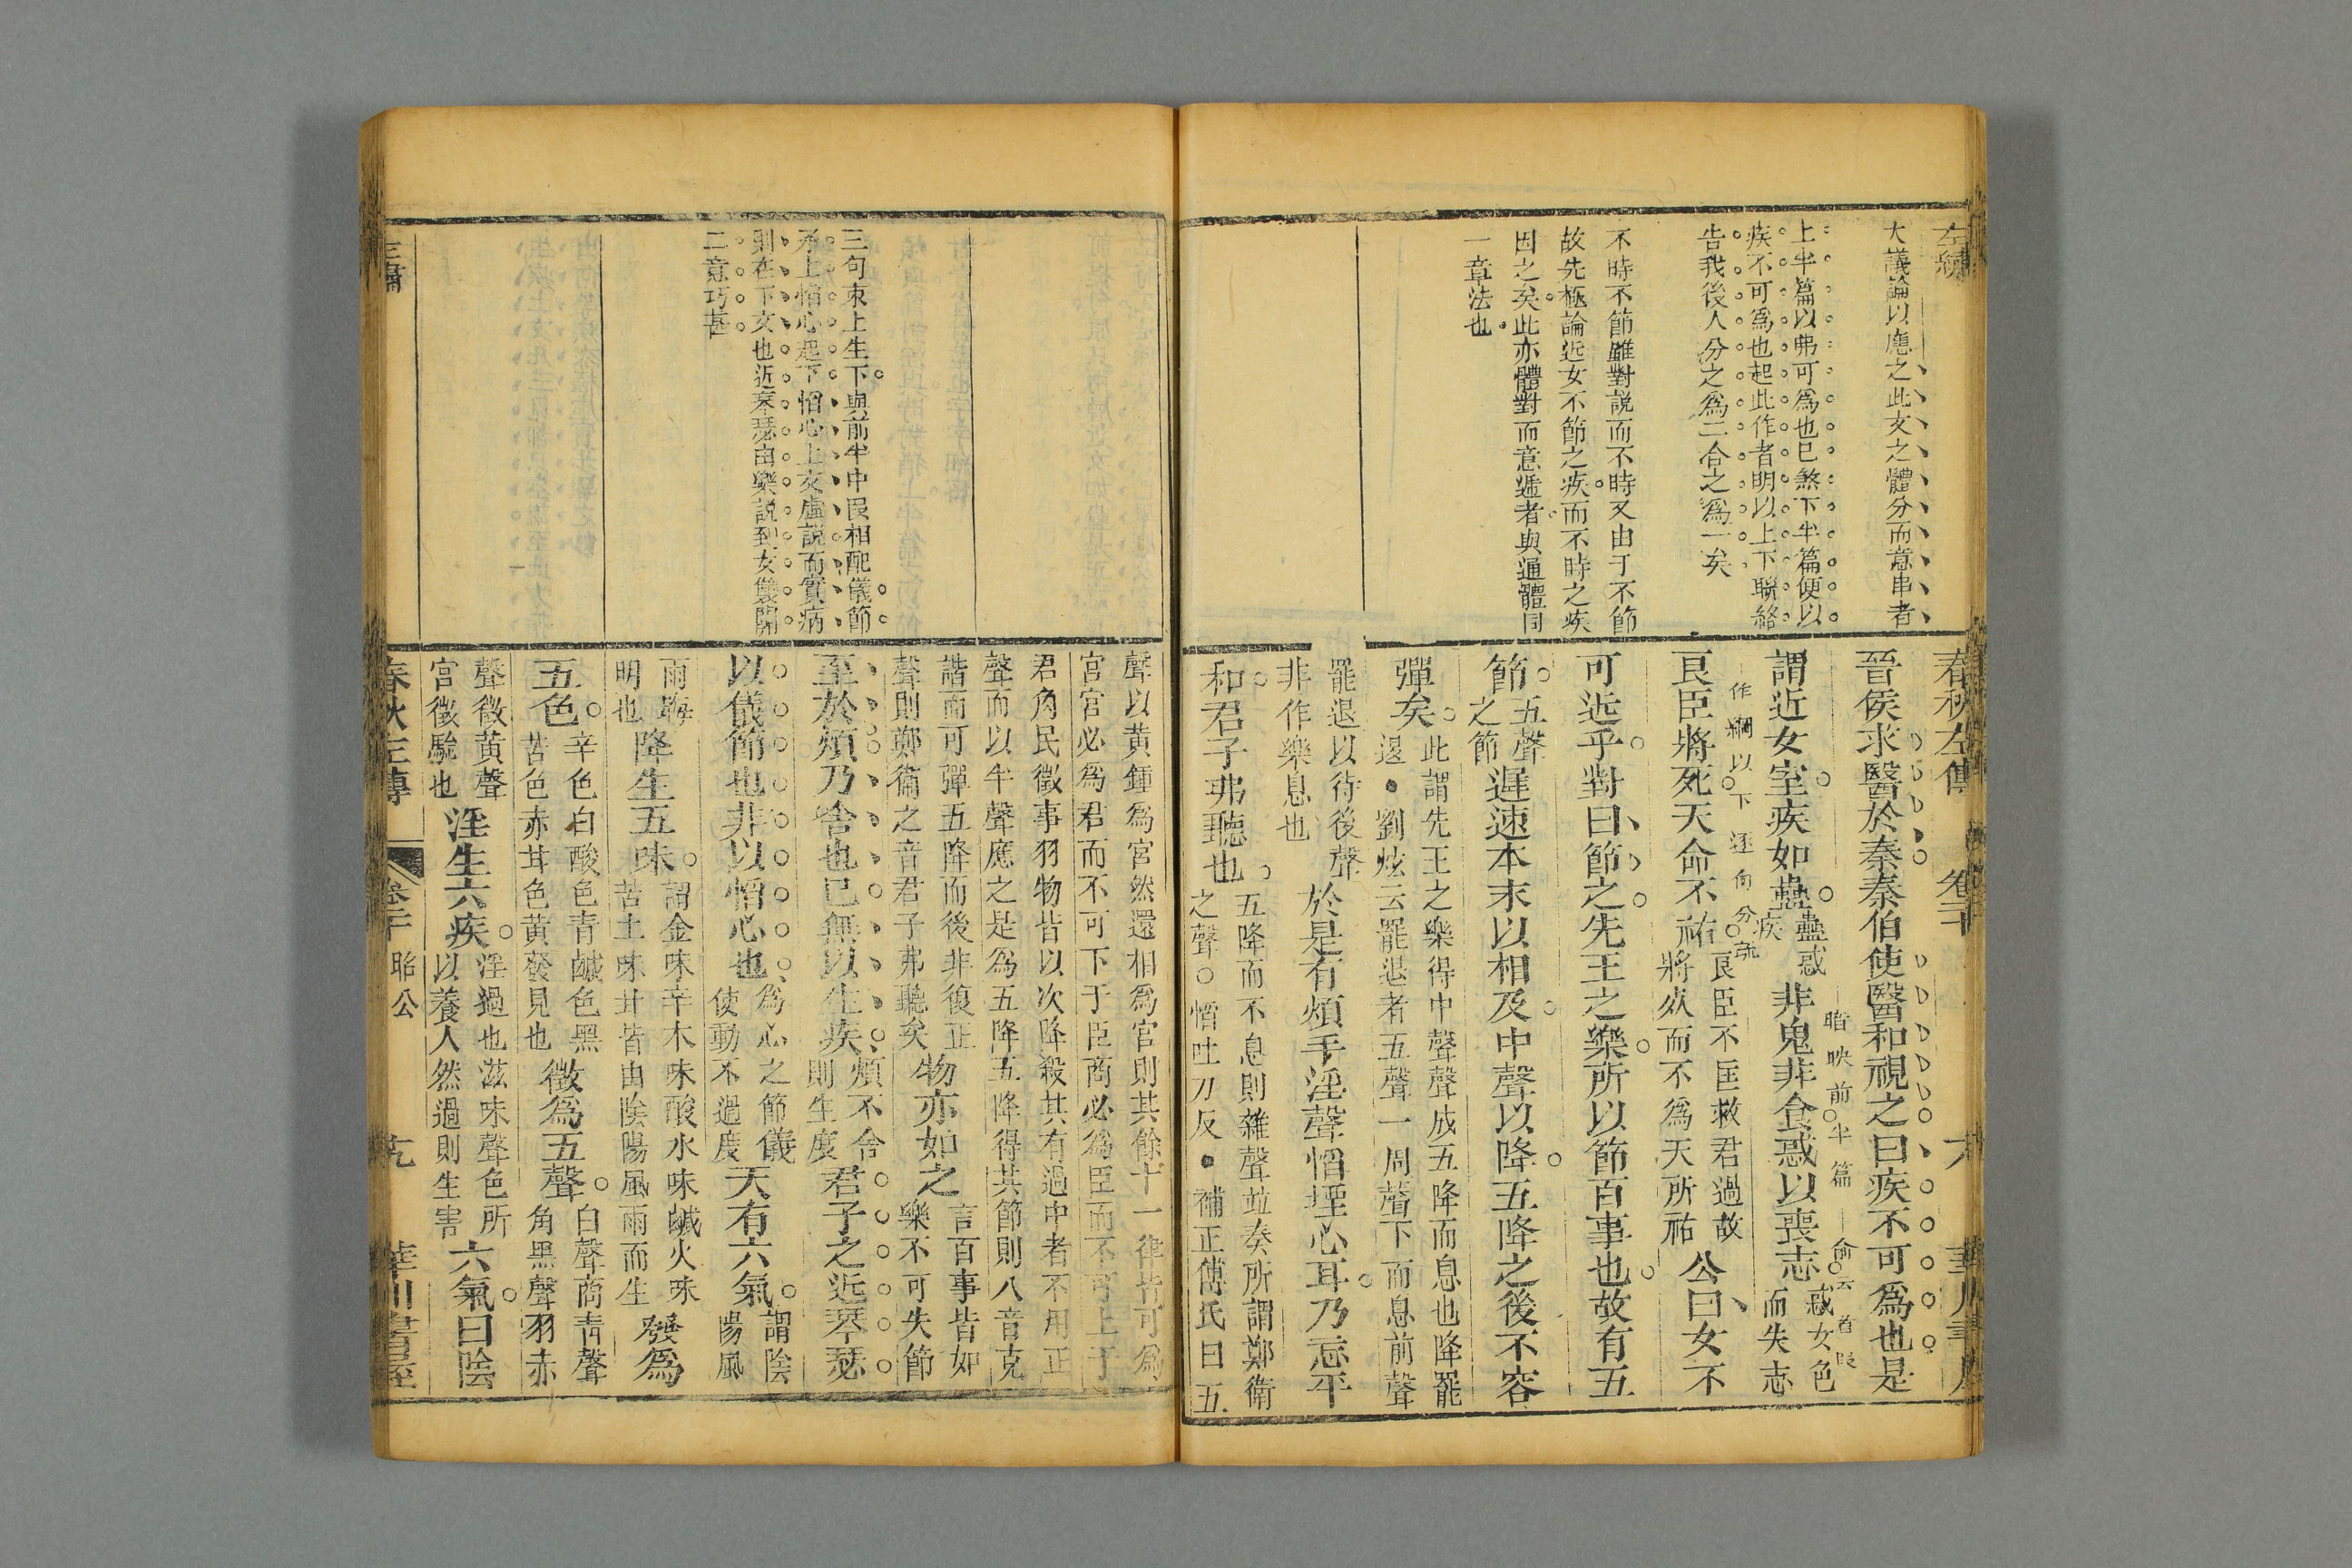 左繡
大議論以應之此文之體分而意串者
上半篇以弗可為也已煞下半篇便以
疾不可為也起此作者明以上下聯絡
告我後人分之為二合之為一矣
不時不節雖對說而不時又由于不節
故先極論近女不節之疾而不時之疾
因之矣此亦體對而意遞者與通體同
一章法也
春秋左傳
卷二十
晉侯求醫於秦秦伯使醫和視之曰疾不可為也是
謂近女室疾如蠱
蠱惑
疾
非鬼非食惑以喪志
惑女色
而失志
暗映前半篇
俞云首段
作綱以下逐句分疏
良臣將死天命不祐
良臣不匡救君過故
將死而不為天所祐
公曰女不
可近乎對曰節之先王之樂所以節百事也故有五
節
五聲
之節
遲速本末以相及中聲以降五降之後不容
彈矣
此謂先王之樂得中聲聲成五降而息也降罷
退•劉炫云罷退者五聲一周聲下而息前聲
罷退以待後聲
非作樂息也
於是有煩手淫聲慆堙心耳乃忘平
和君子弗聽也
五降而不息則雜聲並奏所謂鄭衛
之聲○慆吐刀反•補正傅氏曰五
聲以黃鍾為宮然還相為宮則其餘十一律皆可為
宮宮必為君而不可下于臣商必為臣而不可上于
君角民徵事羽物皆以次降殺其有過中者不用正
聲而以半聲應之是為五降五降得其節則八音克
諧而可彈五降而後非復正
聲則鄭衛之音君子弗聽矣
物亦如之
言百事皆如
樂不可失節
至於煩乃舍也已無以生疾
煩不舍
則生疾
君子之近琴瑟
以儀節也非以慆心也
為心之節儀
使動不過度
天有六氣
謂陰
陽風
雨晦
明也
降生五味
謂金味辛木味酸水味鹹火味
苦土味甘皆由陰陽風雨而生
發為
五色
辛色白酸色青鹹色黑
苦色赤甘色黃發見也
徵為五聲
白聲商青聲
角黑聲羽赤
聲徵黃聲
宮徵驗也
淫生六疾
淫過也滋味聲色所
以養人然過則生害
六氣曰陰
三句束上生下與前半中民相配儀節
承上慆心起下慆心上文虛說而實病
則在下文也近琴瑟由樂說到女雙關
二意巧甚
左繡
春秋左傳
卷二十
昭公
華川書屋